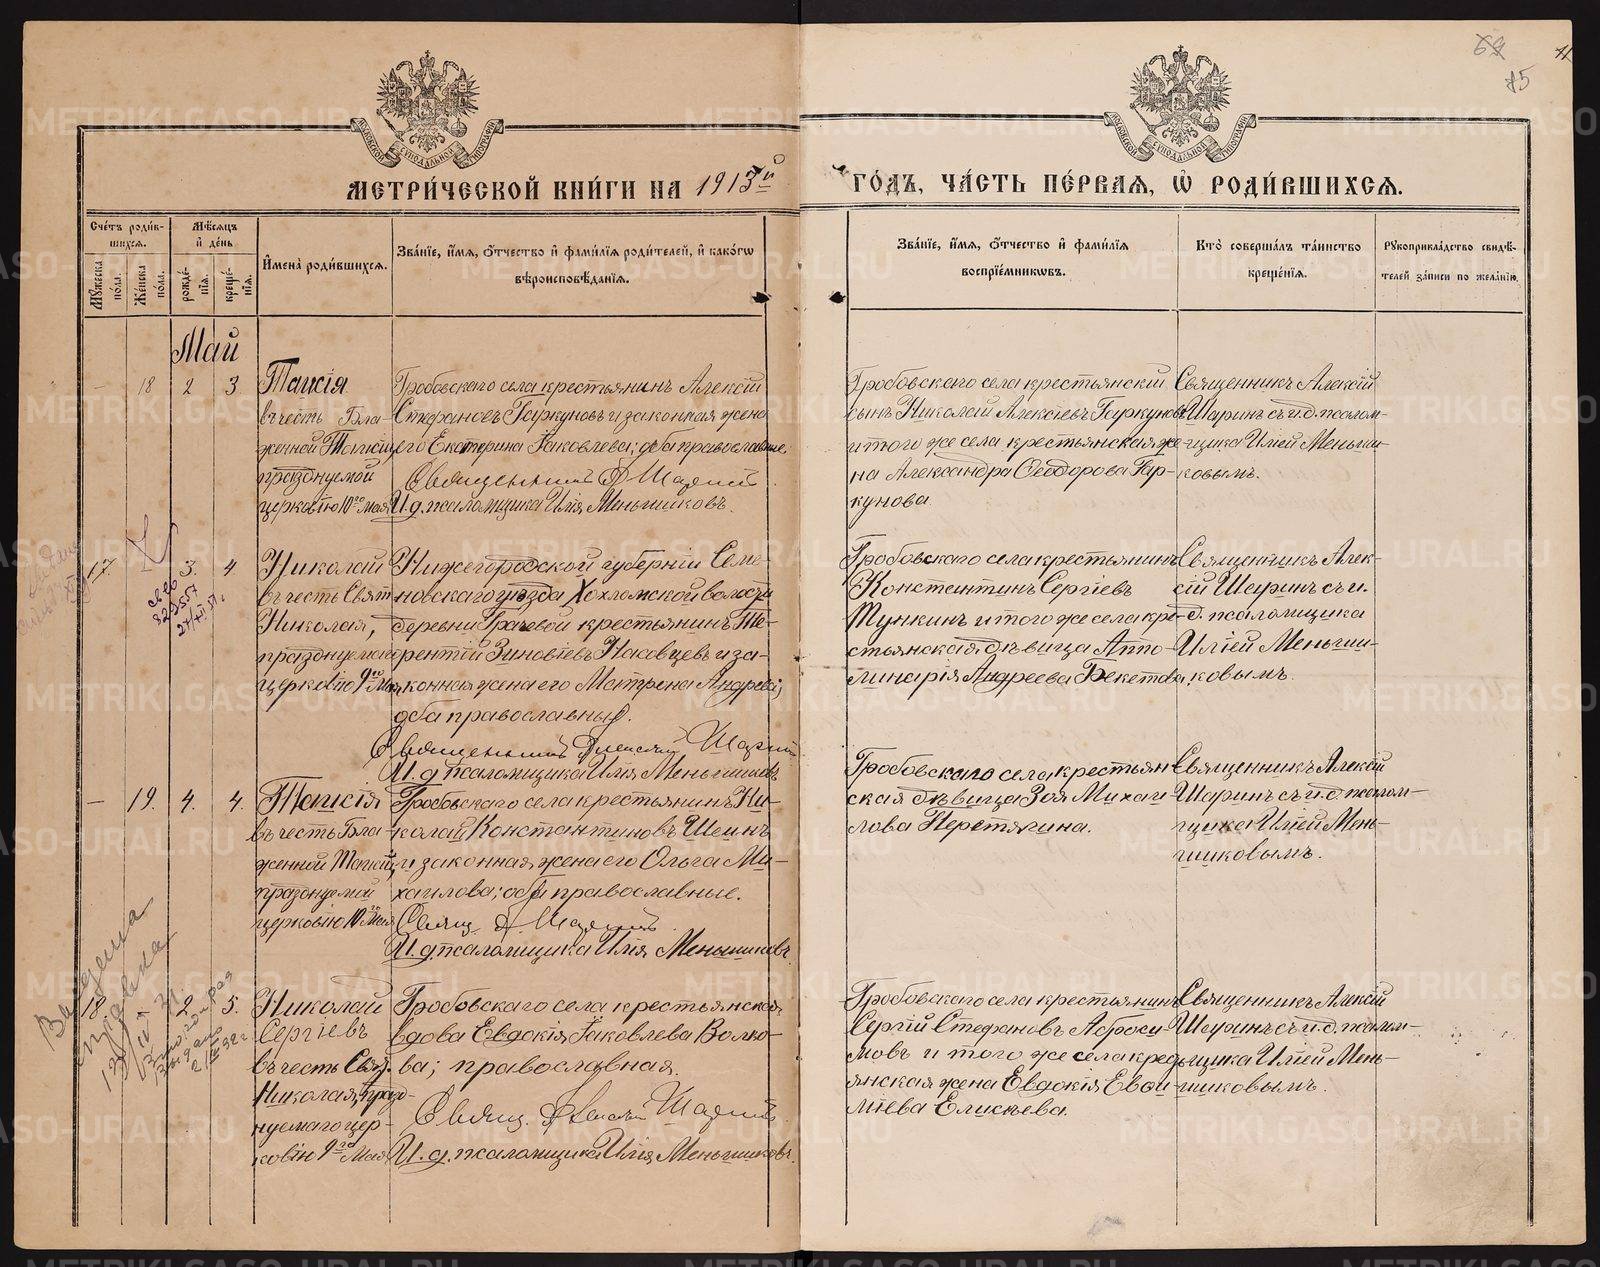 МЕТРИ́ЧЕСКОЙ КНИ́ГИ НА 1913й
ГО́ДЪ, ЧА́СТЬ ПЕ́РВАЯ, Ѡ҆ РОДИ́ВШИХСЯ.
69
75
Сче́тъ роди́в-
шихся.
Мѣ́сяцъ
и҆ де́нь
Му́жеска по́ла.
Же́нска по́ла.
рожде́-
нїя.
креще́-
нїя.
И҆мена̀ роди́вшихся.
Зва́нїе, и҆́мя, ѻ҆́тчество и҆ фами́лїя роди́телей, и҆ како́гѡ
вѣроисповѣ́данїя.
Зва́нїе, и҆́мя, ѻ҆́тчество и҆ фами́лїя
воспрїе́мникѡвъ.
Кто̀ соверша́лъ та́инство
креще́нїя.
Рꙋкоприкла́дство свидѣ́-
телей за́писи по жела́нїю.
Май
– 18 2 3.
Таисія
въ честь Бла-
женной Таисіи,
празднуемой
церковію 10го мая
Гробовскаго села крестьянинъ Алексій
Стефановъ Гаркуновъ и законная жена
его Екатерина Іаковлева; оба православные.
Священникъ А Шаринъ
И.д. псаломщика Илія Меньшиковъ.
Гробовскаго села крестьянскій
сынъ Николай Алексіевъ Гаркуновъ
и того же села крестьянская же-
на Александра Ѳеодорова Гар-
кунова.
Священникъ Алексій
Шаринъ съ и.д. псалом-
щика Иліей Меньши-
ковымъ.
17. 3. 4
Николай
въ честь Свят.
Николая,
празднуемаго
церковію 9го Мая
Нижегородской губерніи Семе-
новскаго уѣзда Хохломской волости
деревни Грачевой крестьянинъ Те-
рентій Зиновіевъ Носовцевъ и за-
конная жена его Матрена Андреева;
оба православные.
Священникъ Алексій Шаринъ
И.д. псаломщика Илія Меньшиковъ
Гробовскаго села крестьянинъ
Константинъ Сергіевъ
Тункинъ и того же села кре-
стьянская дѣвица Аппо-
линарія Андреева Бекетова.
Священникъ Алек-
сій Шаринъ съ и.
д. псаломщика
Иліей Меньши-
ковымъ.
– 19. 4. 4.
Таисія
въ честь Бла-
женной Таисіи,
празднуемой
церковію 10го Мая
Гробовскаго села крестьянинъ Ни-
колай Константиновъ Шеинъ
и законная жена его Ольга Ми-
хаилова; оба православные.
Свящ. А. Шаринъ.
И.д. псаломщика Илія Меньшиковъ.
Гробовскаго села крестьян-
ская дѣвица Зоя Михаи-
лова Перетягина.
Священникъ Алексій
Шаринъ съ и.д. псалом-
щика Иліей Мень-
шиковымъ.
18 2 5.
Николай
Сергіевъ
въ честь Свят.
Николая, празд-
нуемаго цер-
ковію 9го Мая
Гробовскаго села крестьянская
вдова Евдокія Іаковлева Волко-
ва; православная.
Свящ. Алексій Шаринъ
И.д. псаломщика Илія Меньшиковъ.
Гробовскаго села крестьянинъ
Сергій Стефановъ
и того же села крест-
янская жена Евдокія
Елисѣева.
Священникъ Алексій
Шаринъ съ и.д. псалом-
щика Иліей Мень-
шиковымъ.
Выдена
справка
METRIKI.GASO-URAL.RU